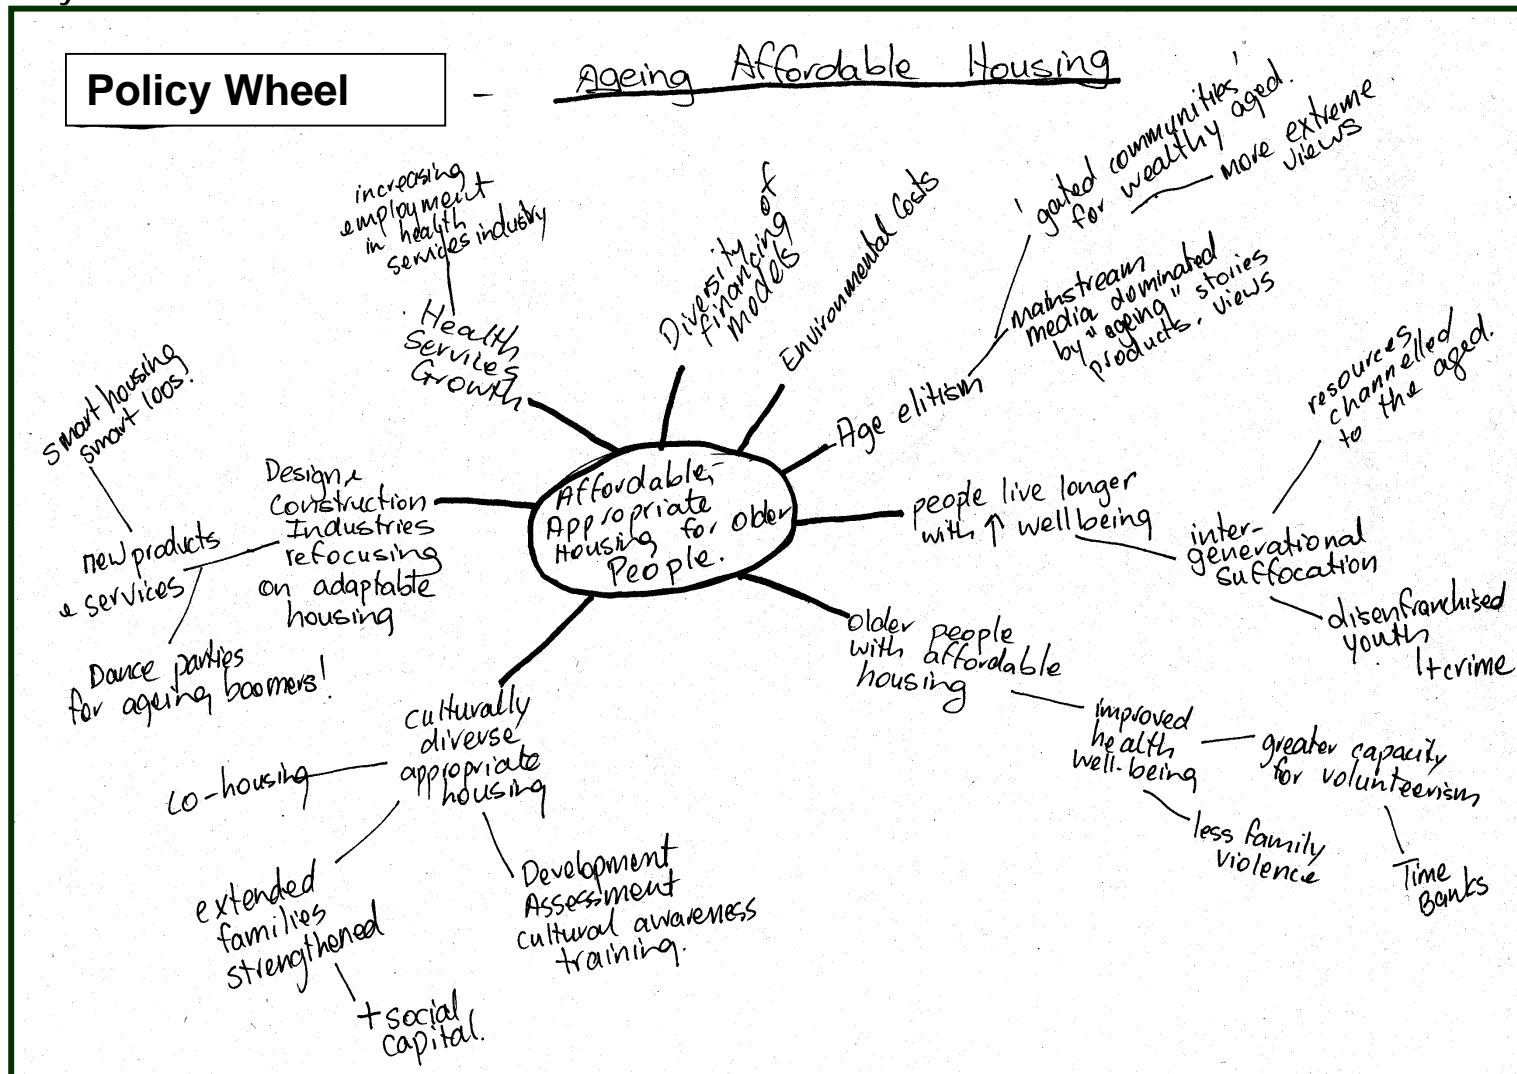 Policy Wheel
- Ageing Affordable Housing
increasing
employment
in health
services industry
Health
Services
Growth
Diversity of
financing
models
Environmental Costs
Age elitism
mainstream
media dominated
by "ageing" stories
products, views
'gated communities'
for wealthy aged.
more extreme
views
Affordable,
Appropriate
Housing for older
People.
people live longer
with ↑ wellbeing
inter-
generational
suffocation
resources
channelled
to the aged.
disenfranchised
youth
+crime
older people
with affordable
housing
improved
health
well-being
greater capacity
for volunteerism
Time
Banks
less family
violence
culturally
diverse
appropriate
housing
co-housing
extended
families
strengthened
+ social
capital.
Development
Assessment
cultural awareness
training.
Design &
Construction
Industries
refocusing
on adaptable
housing
new products
& services
smart housing
smart loos!
Dance parties
for ageing boomers!